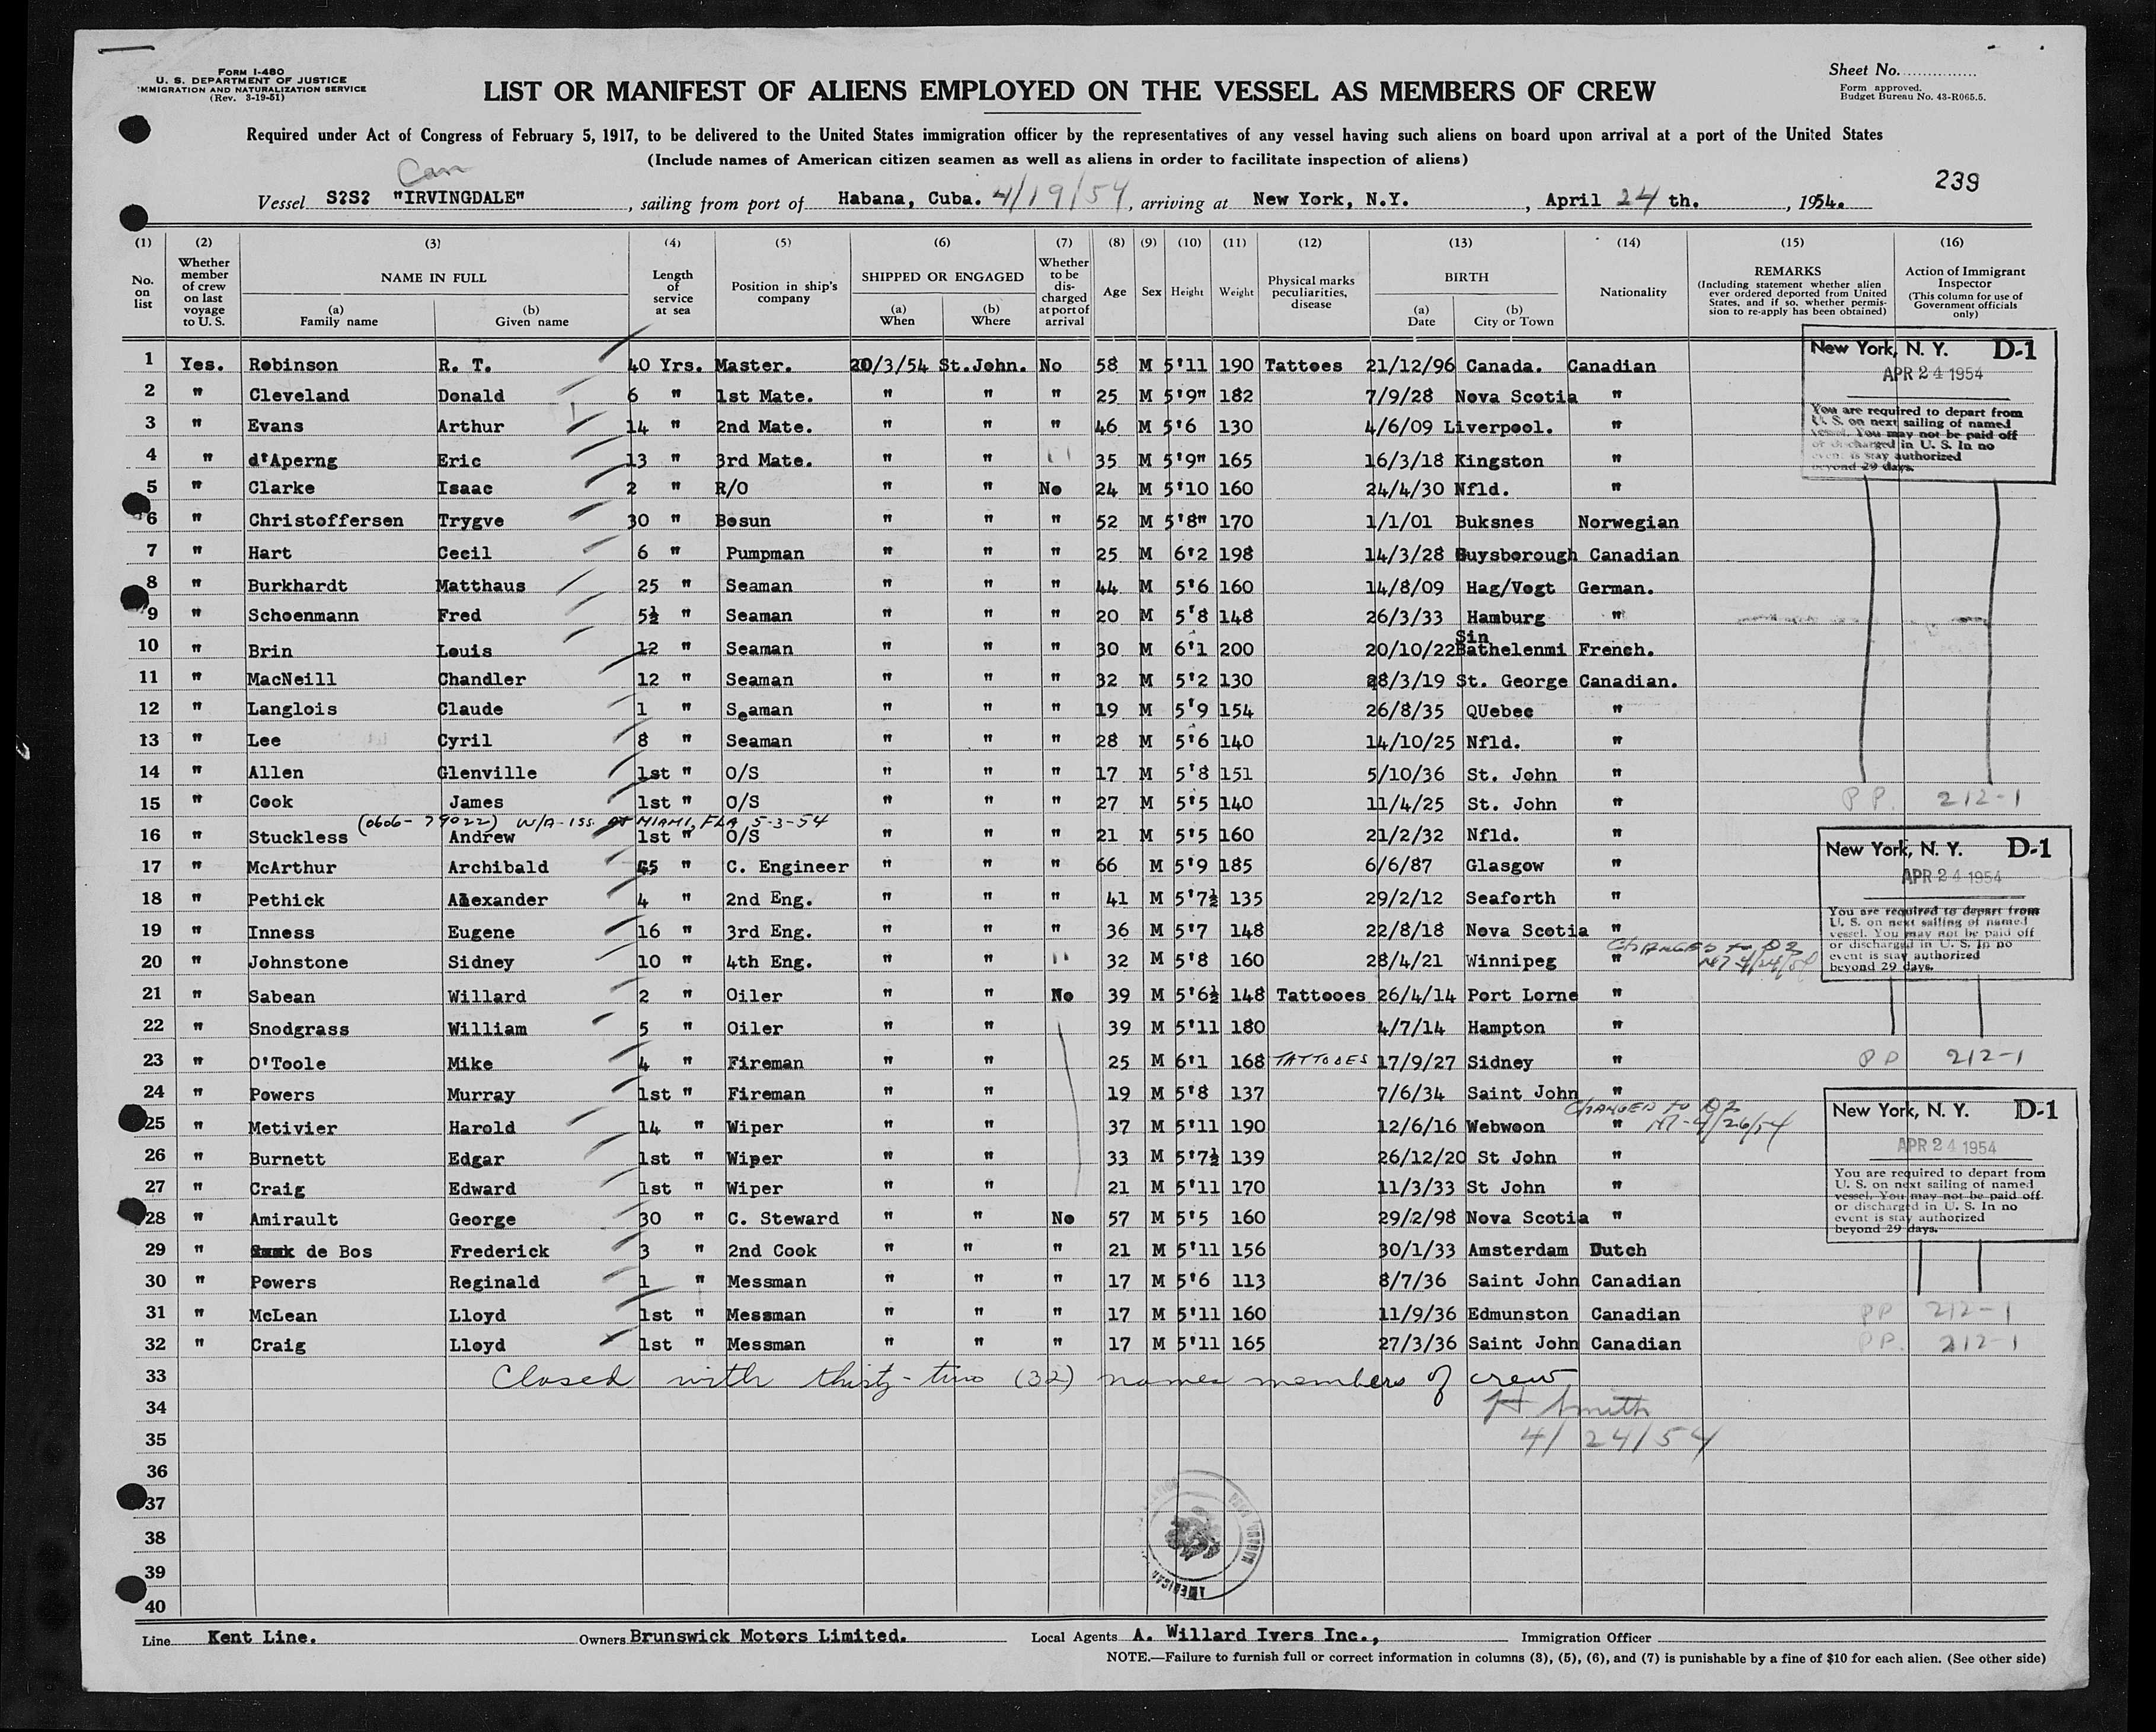 FORM I-480
U. S. DEPARTMENT OF JUSTICE
IMMIGRATION AND NATURALIZATION SERVICE
(Rev. 3-19-51)
LIST OR MANIFEST OF ALIENS EMPLOYED ON THE VESSEL AS MEMBERS OF CREW
Sheet No.
Form approved.
Budget Bureau No. 43-R065.5.
Required under Act of Congress of February 5, 1917, to be delivered to the United States immigration officer by the representatives of any vessel having such aliens on board upon arrival at a port of the United States
(Include names of American citizen seamen as well as aliens in order to facilitate inspection of aliens)
239
Can
Vessel S?S? "IRVINGDALE", sailing from port of Habana, Cuba. 4/19/54, arriving at New York, N.Y., April 24 th., 1954.
(1) (2) (3) (4) (5) (6) (7) (8) (9) (10) (11) (12) (13) (14) (15) (16)
No. on list
Whether member of crew on last voyage to U. S.
NAME IN FULL
(a) Family name
(b) Given name
Length of service at sea
Position in ship's company
SHIPPED OR ENGAGED
(a) When
(b) Where
Whether to be discharged at port of arrival
Age
Sex
Height
Weight
Physical marks peculiarities, disease
BIRTH
(a) Date
(b) City or Town
Nationality
REMARKS
(Including statement whether alien ever ordered deported from United States, and if so, whether permission to re-apply has been obtained)
Action of Immigrant Inspector
(This column for use of Government officials only)
1 Yes. Robinson R. T. 40 Yrs. Master. 20/3/54 St.John. No 58 M 5'11 190 Tattoes 21/12/96 Canada. Canadian
2 " Cleveland Donald 6 " 1st Mate. " " " 25 M 5'9" 182 7/9/28 Nova Scotia "
3 " Evans Arthur 14 " 2nd Mate. " " " 46 M 5'6 130 4/6/09 Liverpool. "
4 " d'Aperng Eric 13 " 3rd Mate. " " " 35 M 5'9" 165 16/3/18 Kingston "
5 " Clarke Isaac 2 " R/O " " No 24 M 5'10 160 24/4/30 Nfld. "
6 " Christoffersen Trygve 30 " Bosun " " " 52 M 5'8" 170 1/1/01 Buksnes Norwegian
7 " Hart Cecil 6 " Pumpman " " " 25 M 6'2 198 14/3/28 Guysborough Canadian
8 " Burkhardt Matthaus 25 " Seaman " " " 44 M 5'6 160 14/8/09 Hag/Vogt German.
9 " Schoenmann Fred 5½ " Seaman " " " 20 M 5'8 148 26/3/33 Hamburg "
10 " Brin Louis 12 " Seaman " " " 30 M 6'1 200 20/10/22 Sin Bathelenmi French.
11 " MacNeill Chandler 12 " Seaman " " " 32 M 5'2 130 28/3/19 St. George Canadian.
12 " Langlois Claude 1 " Seaman " " " 19 M 5'9 154 26/8/35 QUebec "
13 " Lee Cyril 8 " Seaman " " " 28 M 5'6 140 14/10/25 Nfld. "
14 " Allen Glenville 1st " O/S " " " 17 M 5'8 151 5/10/36 St. John "
15 " Cook James 1st " O/S " " " 27 M 5'5 140 11/4/25 St. John " PP. 212-1
(0606-79022) W/A-ISS. AT MIAMI, FLA 5-3-54
16 " Stuckless Andrew 1st " O/S " " " 21 M 5'5 160 21/2/32 Nfld. "
17 " McArthur Archibald 45 " C. Engineer " " " 66 M 5'9 185 6/6/87 Glasgow "
18 " Pethick Alexander 4 " 2nd Eng. " " " 41 M 5'7½ 135 29/2/12 Seaforth "
19 " Inness Eugene 16 " 3rd Eng. " " " 36 M 5'7 148 22/8/18 Nova Scotia "
20 " Johnstone Sidney 10 " 4th Eng. " " " 32 M 5'8 160 28/4/21 Winnipeg " CHANGED to D2 4/24/54
21 " Sabean Willard 2 " Oiler " " No 39 M 5'6½ 148 Tattooes 26/4/14 Port Lorne "
22 " Snodgrass William 5 " Oiler " " 39 M 5'11 180 4/7/14 Hampton "
23 " O'Toole Mike 4 " Fireman " " 25 M 6'1 168 TATTOOES 17/9/27 Sidney " PP 212-1
24 " Powers Murray 1st " Fireman " " 19 M 5'8 137 7/6/34 Saint John "
25 " Metivier Harold 14 " Wiper " " 37 M 5'11 190 12/6/16 Webwoon " CHANGED to D2 4/26/54
26 " Burnett Edgar 1st " Wiper " " 33 M 5'7½ 139 26/12/20 St John "
27 " Craig Edward 1st " Wiper " " 21 M 5'11 170 11/3/33 St John "
28 " Amirault George 30 " C. Steward " " No 57 M 5'5 160 29/2/98 Nova Scotia "
29 " de Bos Frederick 3 " 2nd Cook " " " 21 M 5'11 156 30/1/33 Amsterdam Dutch
30 " Powers Reginald 1 " Messman " " " 17 M 5'6 113 8/7/36 Saint John Canadian
31 " McLean Lloyd 1st " Messman " " " 17 M 5'11 160 11/9/36 Edmunston Canadian PP 212-1
32 " Craig Lloyd 1st " Messman " " " 17 M 5'11 165 27/3/36 Saint John Canadian PP. 212-1
33 Closed with thirty-two (32) names members of crew
34 H Smith
35 4/24/54
36
37
38
39
40
New York, N. Y. D-1
APR 24 1954
You are required to depart from
U. S. on next sailing of named
vessel. You may not be paid off
or discharged in U. S. In no
event is stay authorized
beyond 29 days.
New York, N. Y. D-1
APR 24 1954
You are required to depart from
U. S. on next sailing of named
vessel. You may not be paid off
or discharged in U. S. In no
event is stay authorized
beyond 29 days.
New York, N. Y. D-1
APR 24 1954
You are required to depart from
U. S. on next sailing of named
vessel. You may not be paid off
or discharged in U. S. In no
event is stay authorized
beyond 29 days.
AMERICAN
Line Kent Line. Owners Brunswick Motors Limited. Local Agents A. Willard Ivers Inc., Immigration Officer
NOTE.—Failure to furnish full or correct information in columns (3), (5), (6), and (7) is punishable by a fine of $10 for each alien. (See other side)